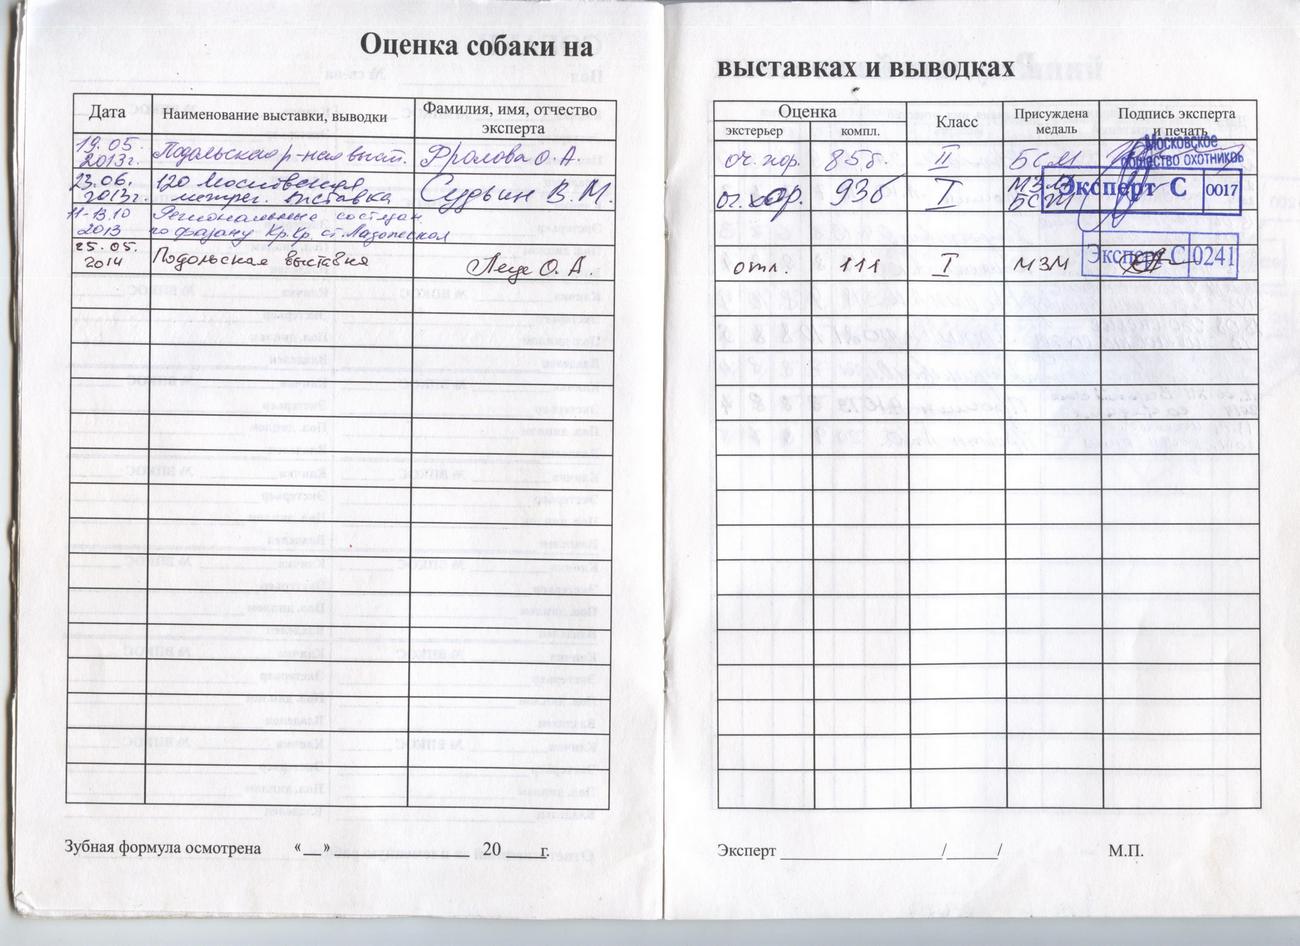 Оценка собаки на
выставках и выводках
Дата
Наименование выставки, выводки
Фамилия, имя, отчество
эксперта
Оценка
экстерьер
компл.
Класс
Присуждена
медаль
Подпись эксперта
и печать
19.05.
2013г.
Подольская р-ная выст.
Фролова О.А.
оч. хор.
85б.
II
БСМ
Московское
общество охотников
23.06.
2013г.
120 Московская
межрег. выставка
Судьин В.М.
оч. хор.
93б
I
МЗМ
БСМ
Эксперт С
0017
11-13.10
2013
Региональные состязан.
по фазану Кр.Кр. ст.
25.05.
2014
Подольская выставка
О.А.
отл.
111
I
МЗМ
Эксперт С
0241
Зубная формула осмотрена «__» ________________ 20 ____г.
Эксперт __________________/______/
М.П.